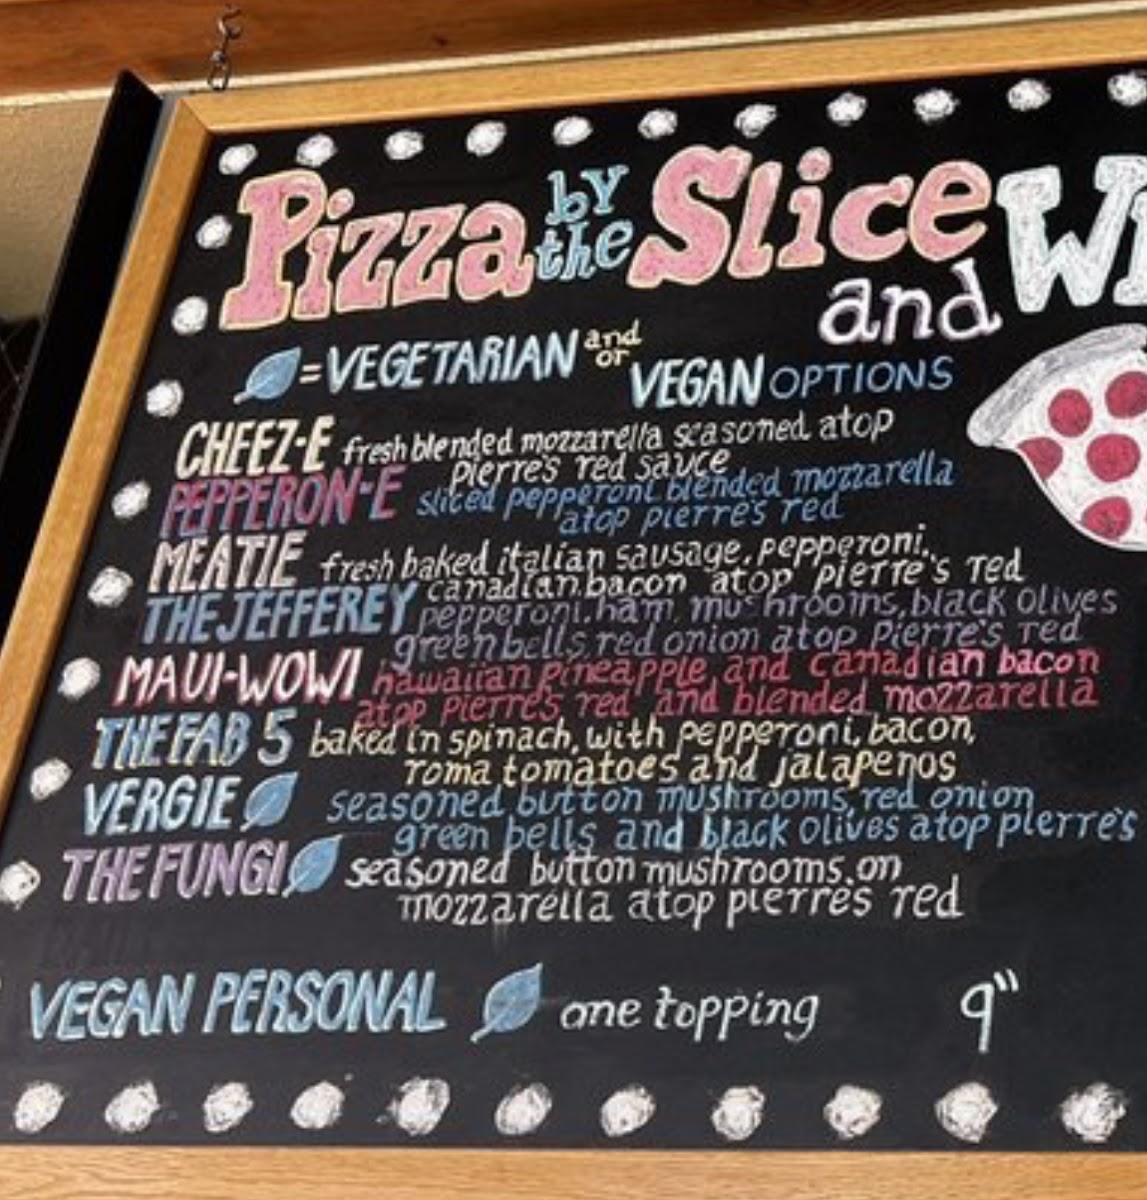 Pizza by the Slice
and
= VEGETARIAN and or VEGAN OPTIONS
CHEEZ-E fresh blended mozzarella seasoned atop
pierre's red sauce
PEPPERON-E sliced pepperoni blended mozzarella
atop pierres red
MEATIE fresh baked italian sausage, pepperoni,
canadian bacon atop pierre's red
THE JEFFEREY pepperoni, ham, mushrooms, black olives
green bells, red onion atop Pierre's red
MAUI-WOWI hawaiian pineapple, and canadian bacon
atop pierres red and blended mozzarella
THE FAB 5 baked in spinach, with pepperoni, bacon,
roma tomatoes and jalapenos
VERGIE seasoned button mushrooms, red onion
green bells and black olives atop pierre's
THE FUNGI seasoned button mushrooms, on
mozzarella atop pierres red
VEGAN PERSONAL one topping 9"